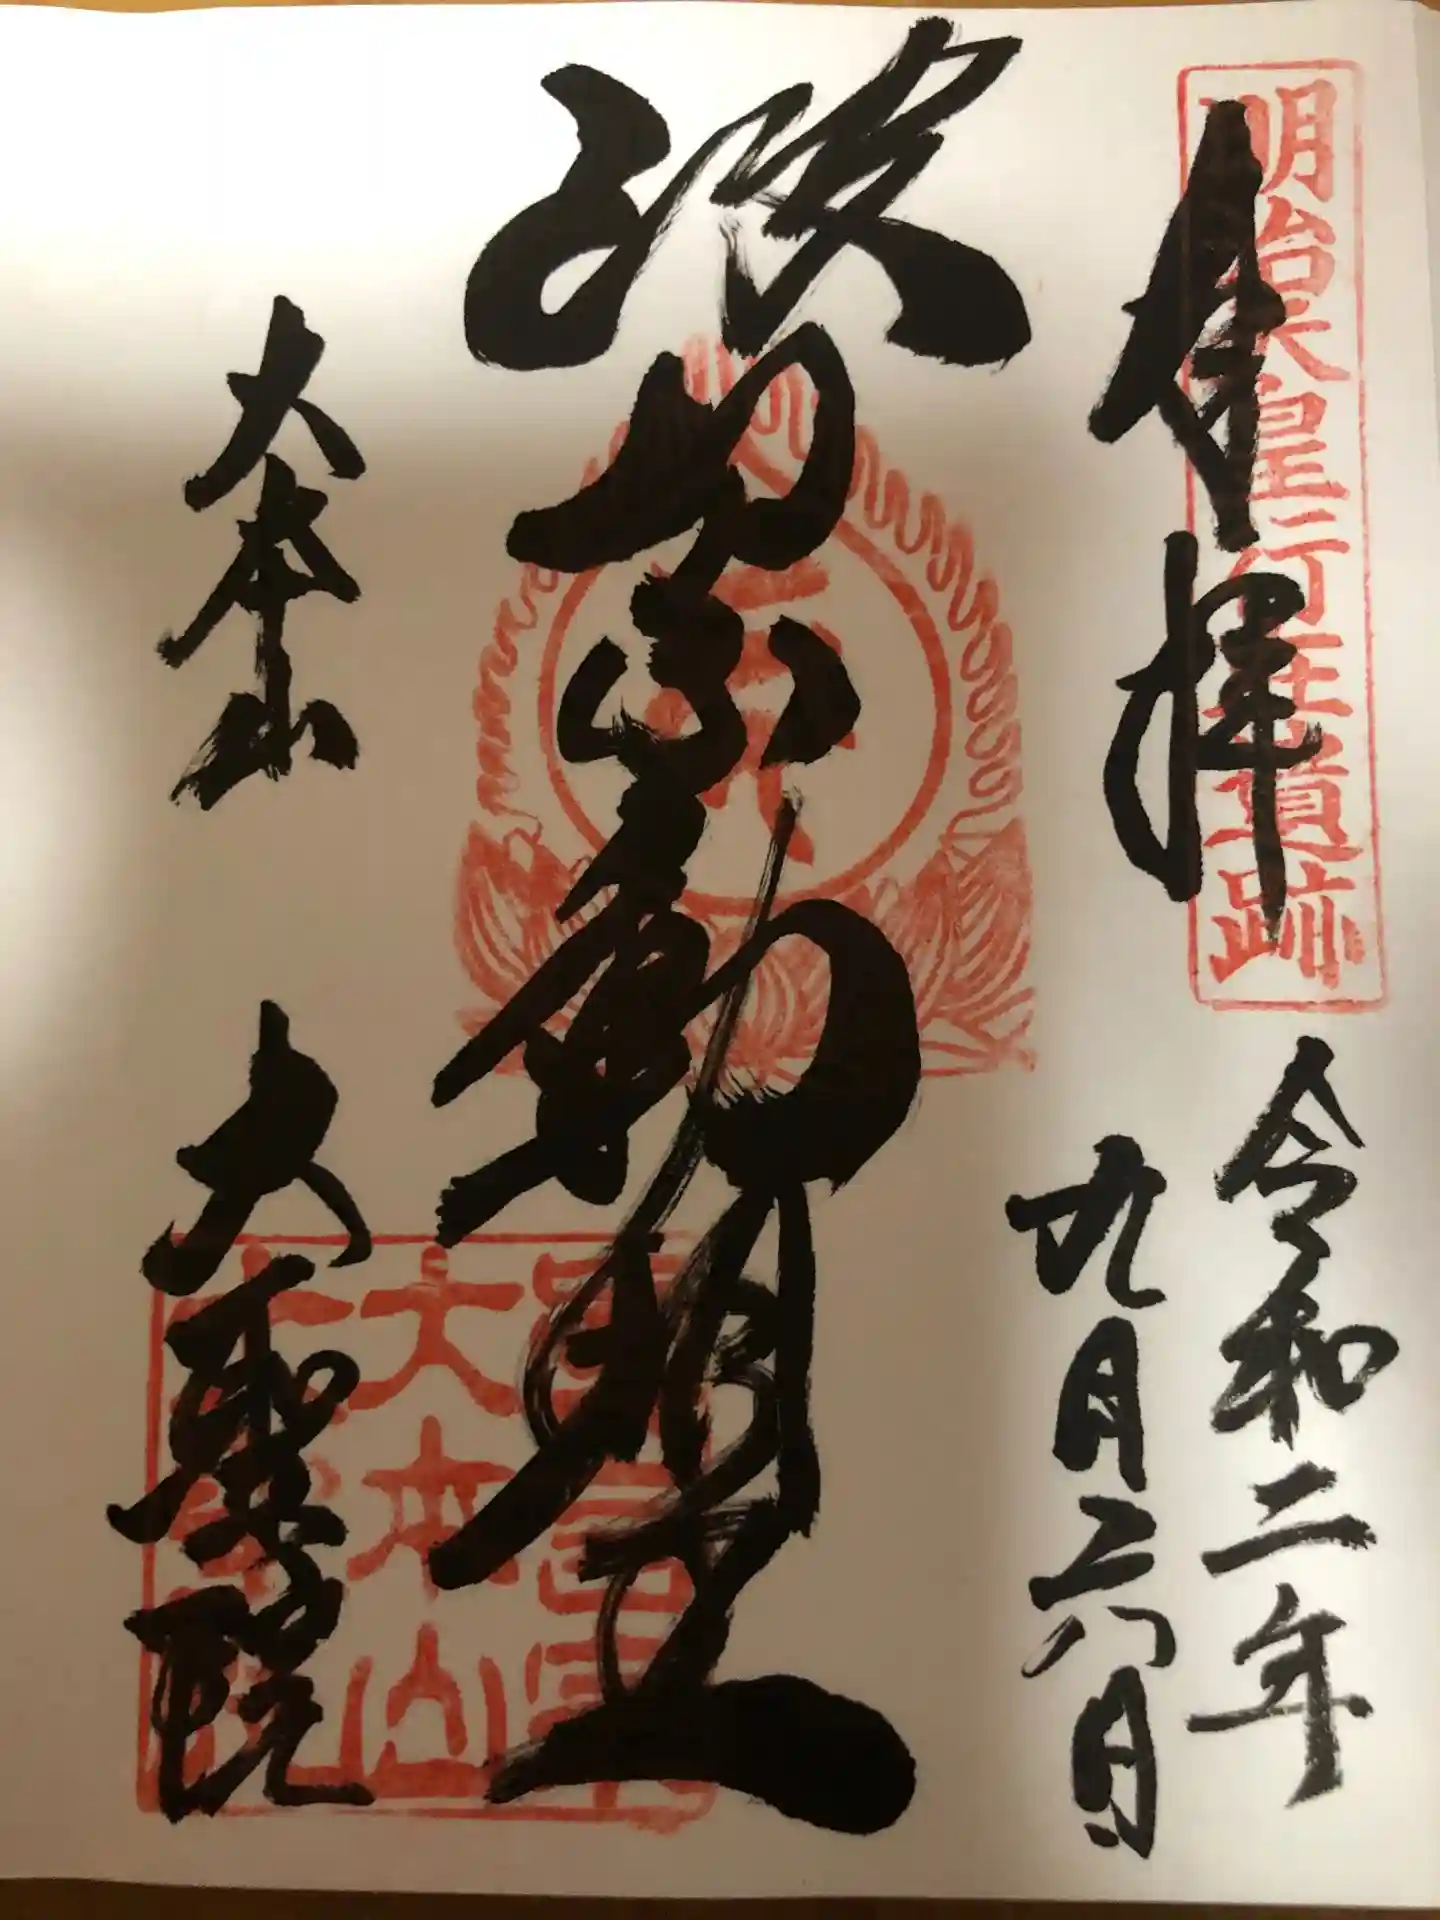 明治天皇行在遺跡
奉拝
令和二年
九月二六日
波切不動明王
大本山
大聖院
大本山